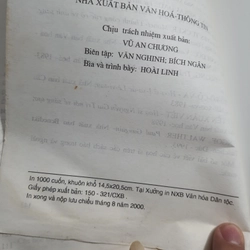 NHÀ XUẤT BẢN VĂN HOÁ-THÔNG TIN
Chịu trách nhiệm xuất bản:
VŨ AN CHƯƠNG
Biên tập: VĂN NGHINH; BÍCH NGÂN
Bìa và trình bày: HOÀI LINH
In 1000 cuốn, khuôn khổ 14,5x20,5cm. Tại Xưởng in NXB Văn hóa Dân tộc.
Giấy phép xuất bản: 150 - 321/CXB
In xong và nộp lưu chiểu tháng 8 năm 2000.